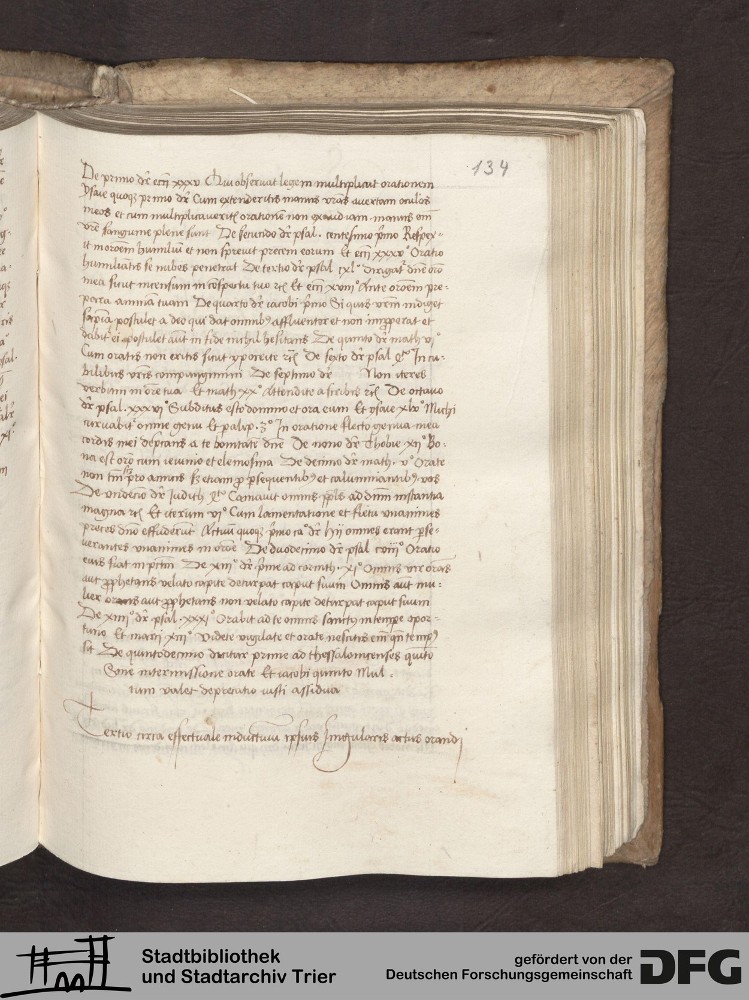 134
De primo dr̄ eccī xxxv Qui observat legem multiplicat orationem
Ysaie quoqꝫ primo dr̄ Cum extenderitis manus vr̄as avertam oculos
meos et cum multiplicaveritꝭ orationē non exaudiam. manus em̄
vr̄e sanguine plene sunt De secundo dr̄ psal. centesimo pͥmo Respex-
it or̄oem humiliū et non sprevit precem eorum Et eccī xxxvᵒ Oratio
humiliantis se nubes penetrat De tertio dr̄ psal cxlᵒ dirigatᷣ dn̄e or̄o
mea sicut incensum in cōspectu tuo rc̄ Et eccī xviiiᵒ Ante or̄oem pre-
para animā tuam De quarto dr̄ iacobi pͥmo Si quis vr̄m indiget
sapīa postulet a deo qui dat omnibꝫ affluenter et non imꝓperat et
dabitᷣ ei postulet aūt in fide nihil hesitans De quinto dr̄ math viᵒ
Cum oratis non eritis sicut ypocrite rc̄ De sexto dr̄ psal qᵗᵒ In cu-
bilibus vr̄is compungimini De septimo dr̄ Non iteres
verbum in or̄e tua Et math. xxᵒ Attendite a scribis rc̄ De octavo
dr̄ psal. xxxviᵒ Subditus esto domino et ora eum Et ysaie xlvᵒ Michi
curvabitᷣ omne genu Et palip. 3ᵒ In oratione flecto genua mea
cordis mei deprans a te bonitatē dn̄e De nono dr̄ Thobie xijᵒ Bo-
na est or̄o cum ieiunio et elemosina De decimo dr̄ math. vᵒ Orate
non tm̄ pro amicis sꝫ etiam ꝓ ꝑsequentibꝫ et calumniantibꝫ vos
De undecīo dr̄ Judith qᵗᵒ Camavit omnis ppl̄s ad dn̄m instantia
magna rc̄ Et iterum viᵒ Cum lamentatione et fletu unanimes
preces dn̄o effuderūt Actuū quoqꝫ pͥmo caᵒ dr̄ hij omnes erant ꝑse-
verantes unanimes in or̄oe De duodecimo dr̄ psal cviiiᵒ Oratio
eius fiat in pctm̄ De xiiiᵒ dr̄ pͥme ad corinth. xiᵒ Omnis vir orās
aut ꝓphetans velato capite deturpat caput suum Omnis aūt mu-
lier orans aut ꝓphetans non velato capite deturpat caput suum
De xiiiiᵒ dr̄ psal. xxxiᵒ Orabit ad te omnis sanctꝰ in tempe opor-
tuno Et marci xiiiᵒ videte vigilate et orate nescitis em̄ qn̄ tempꝰ
sit De quintodecimo dicitur prime ad thessalonicenses quīto
Sine intermissione orate Et iacobi quinto Mul-
tum valet deprecatio iusti assidua
Tertio circa effectuale inductivū ipsius singularis actus orandi
Stadtbibliothek
und Stadtarchiv Trier
gefördert von der
Deutschen Forschungsgemeinschaft
DFG